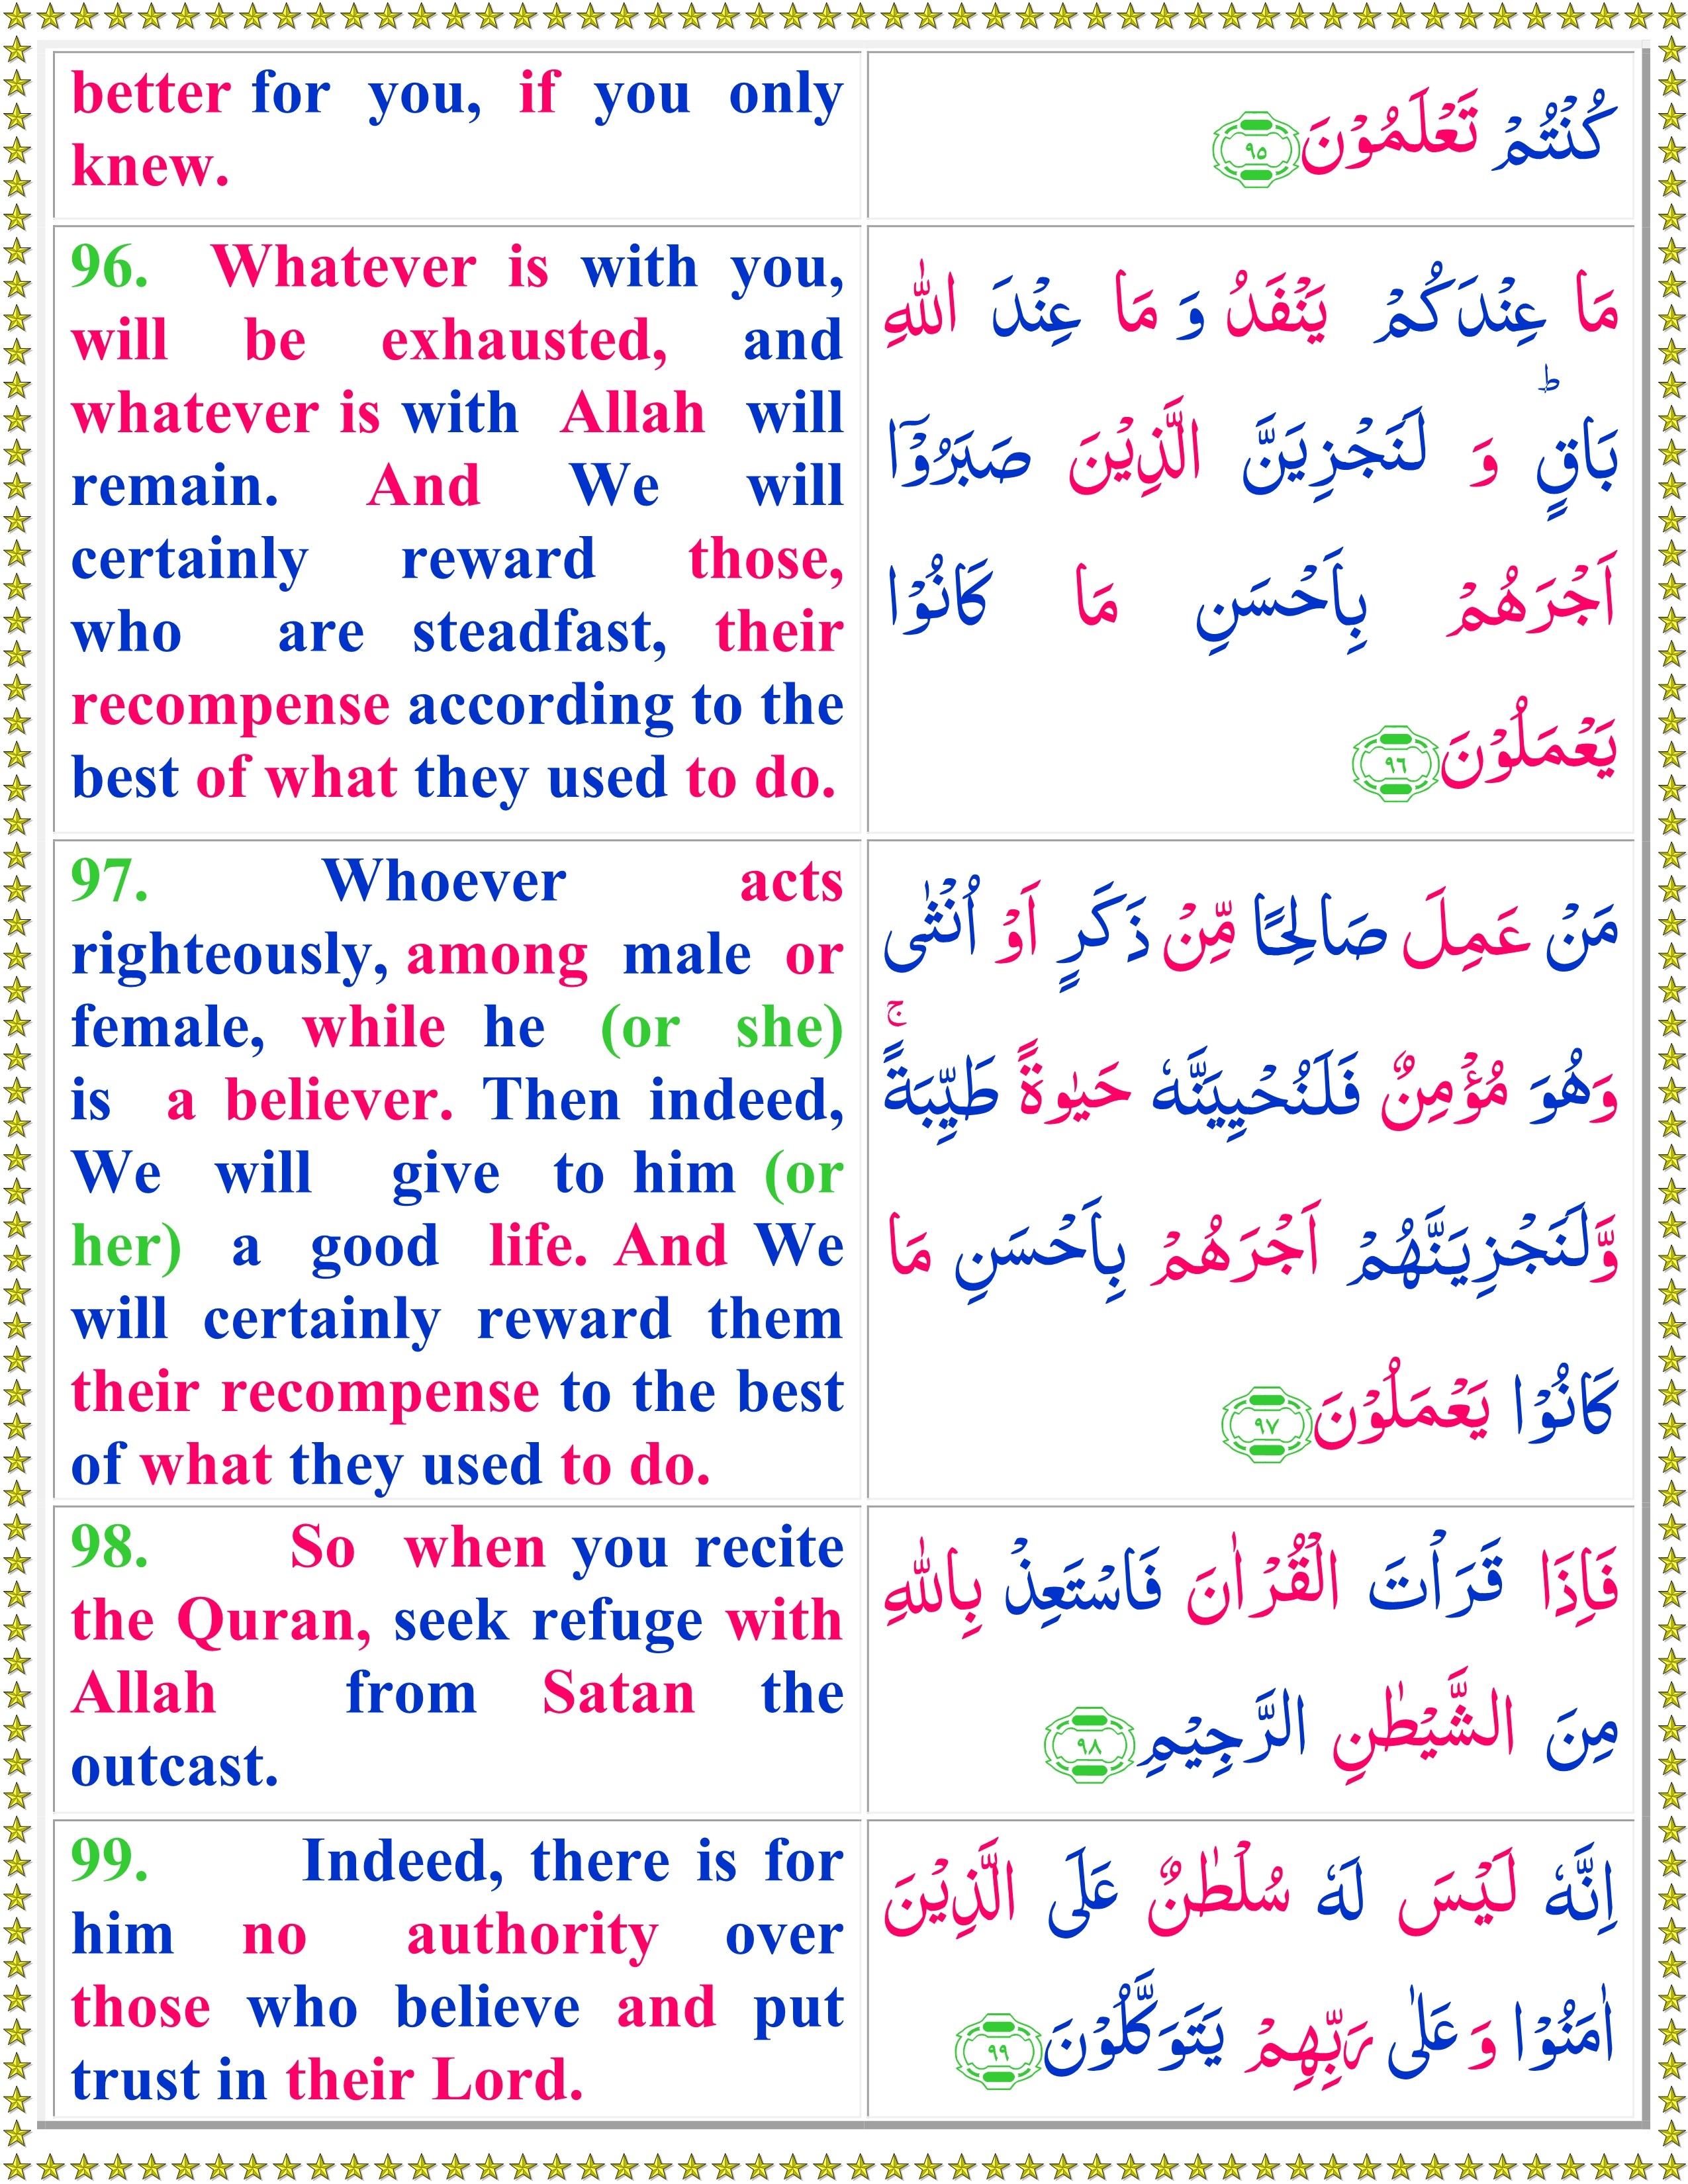 better for you, if you only
knew.
كُنْتُمْ تَعْلَمُوْنَ ٩٥
96. Whatever is with you,
will be exhausted, and
whatever is with Allah will
remain. And We will
certainly reward those,
who are steadfast, their
recompense according to the
best of what they used to do.
مَا عِنْدَكُمْ يَنْفَدُ وَ مَا عِنْدَ اللّٰهِ
بَاقٍ ؕ وَ لَنَجْزِيَنَّ الَّذِيْنَ صَبَرُوْۤا
اَجْرَهُمْ بِاَحْسَنِ مَا كَانُوْا
يَعْمَلُوْنَ ٩٦
97. Whoever acts
righteously, among male or
female, while he (or she)
is a believer. Then indeed,
We will give to him (or
her) a good life. And We
will certainly reward them
their recompense to the best
of what they used to do.
مَنْ عَمِلَ صَالِحًا مِّنْ ذَكَرٍ اَوْ اُنْثٰى
وَهُوَ مُؤْمِنٌ فَلَنُحْيِيَنَّهٗ حَيٰوةً طَيِّبَةً ۚ
وَّلَنَجْزِيَنَّهُمْ اَجْرَهُمْ بِاَحْسَنِ مَا
كَانُوْا يَعْمَلُوْنَ ٩٧
98. So when you recite
the Quran, seek refuge with
Allah from Satan the
outcast.
فَاِذَا قَرَاْتَ الْقُرْاٰنَ فَاسْتَعِذْ بِاللّٰهِ
مِنَ الشَّيْطٰنِ الرَّجِيْمِ ٩٨
99. Indeed, there is for
him no authority over
those who believe and put
trust in their Lord.
اِنَّهٗ لَيْسَ لَهٗ سُلْطٰنٌ عَلَى الَّذِيْنَ
اٰمَنُوْا وَ عَلٰى رَبِّهِمْ يَتَوَكَّلُوْنَ ٩٩